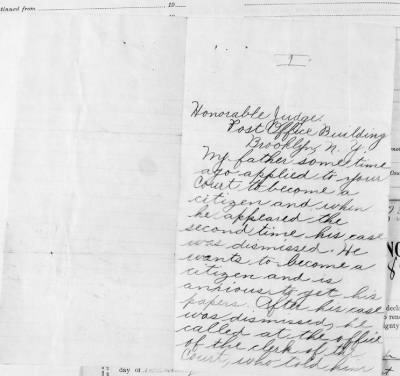 tinued from
19
1
Honorable Judge,
Post Office Building
Brooklyn, N. Y.
My father some time
ago applied to your
Court to become a
citizen and when
he appeared the
second time his case
was dismissed. He
wants to become a
citizen and is
anxious to get his
papers. After his case
was dismissed, he
called at the office
of the clerk of the
Court, who told him
day of